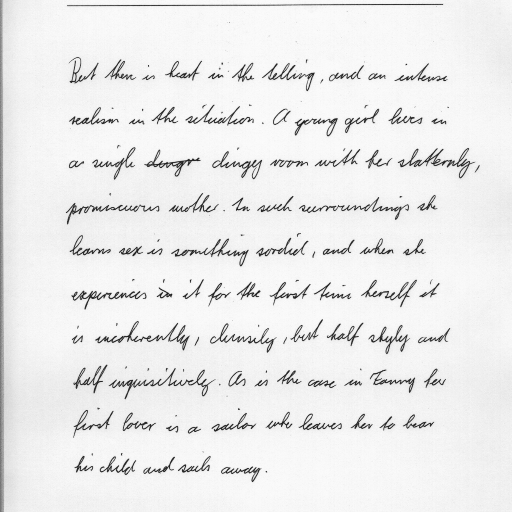 But there is heart in the telling, and an intense
realism in the situation. A young girl lives in
a single dingy room with her slatternly,
promiscuous mother. In such surroundings she
learns sex is something sordid, and when she
experiences it for the first time herself it
is incoherently, clumsily, but half shyly and
half inquisitively. As is the case in Fanny her
first lover is a sailor who leaves her to bear
his child and sails away.